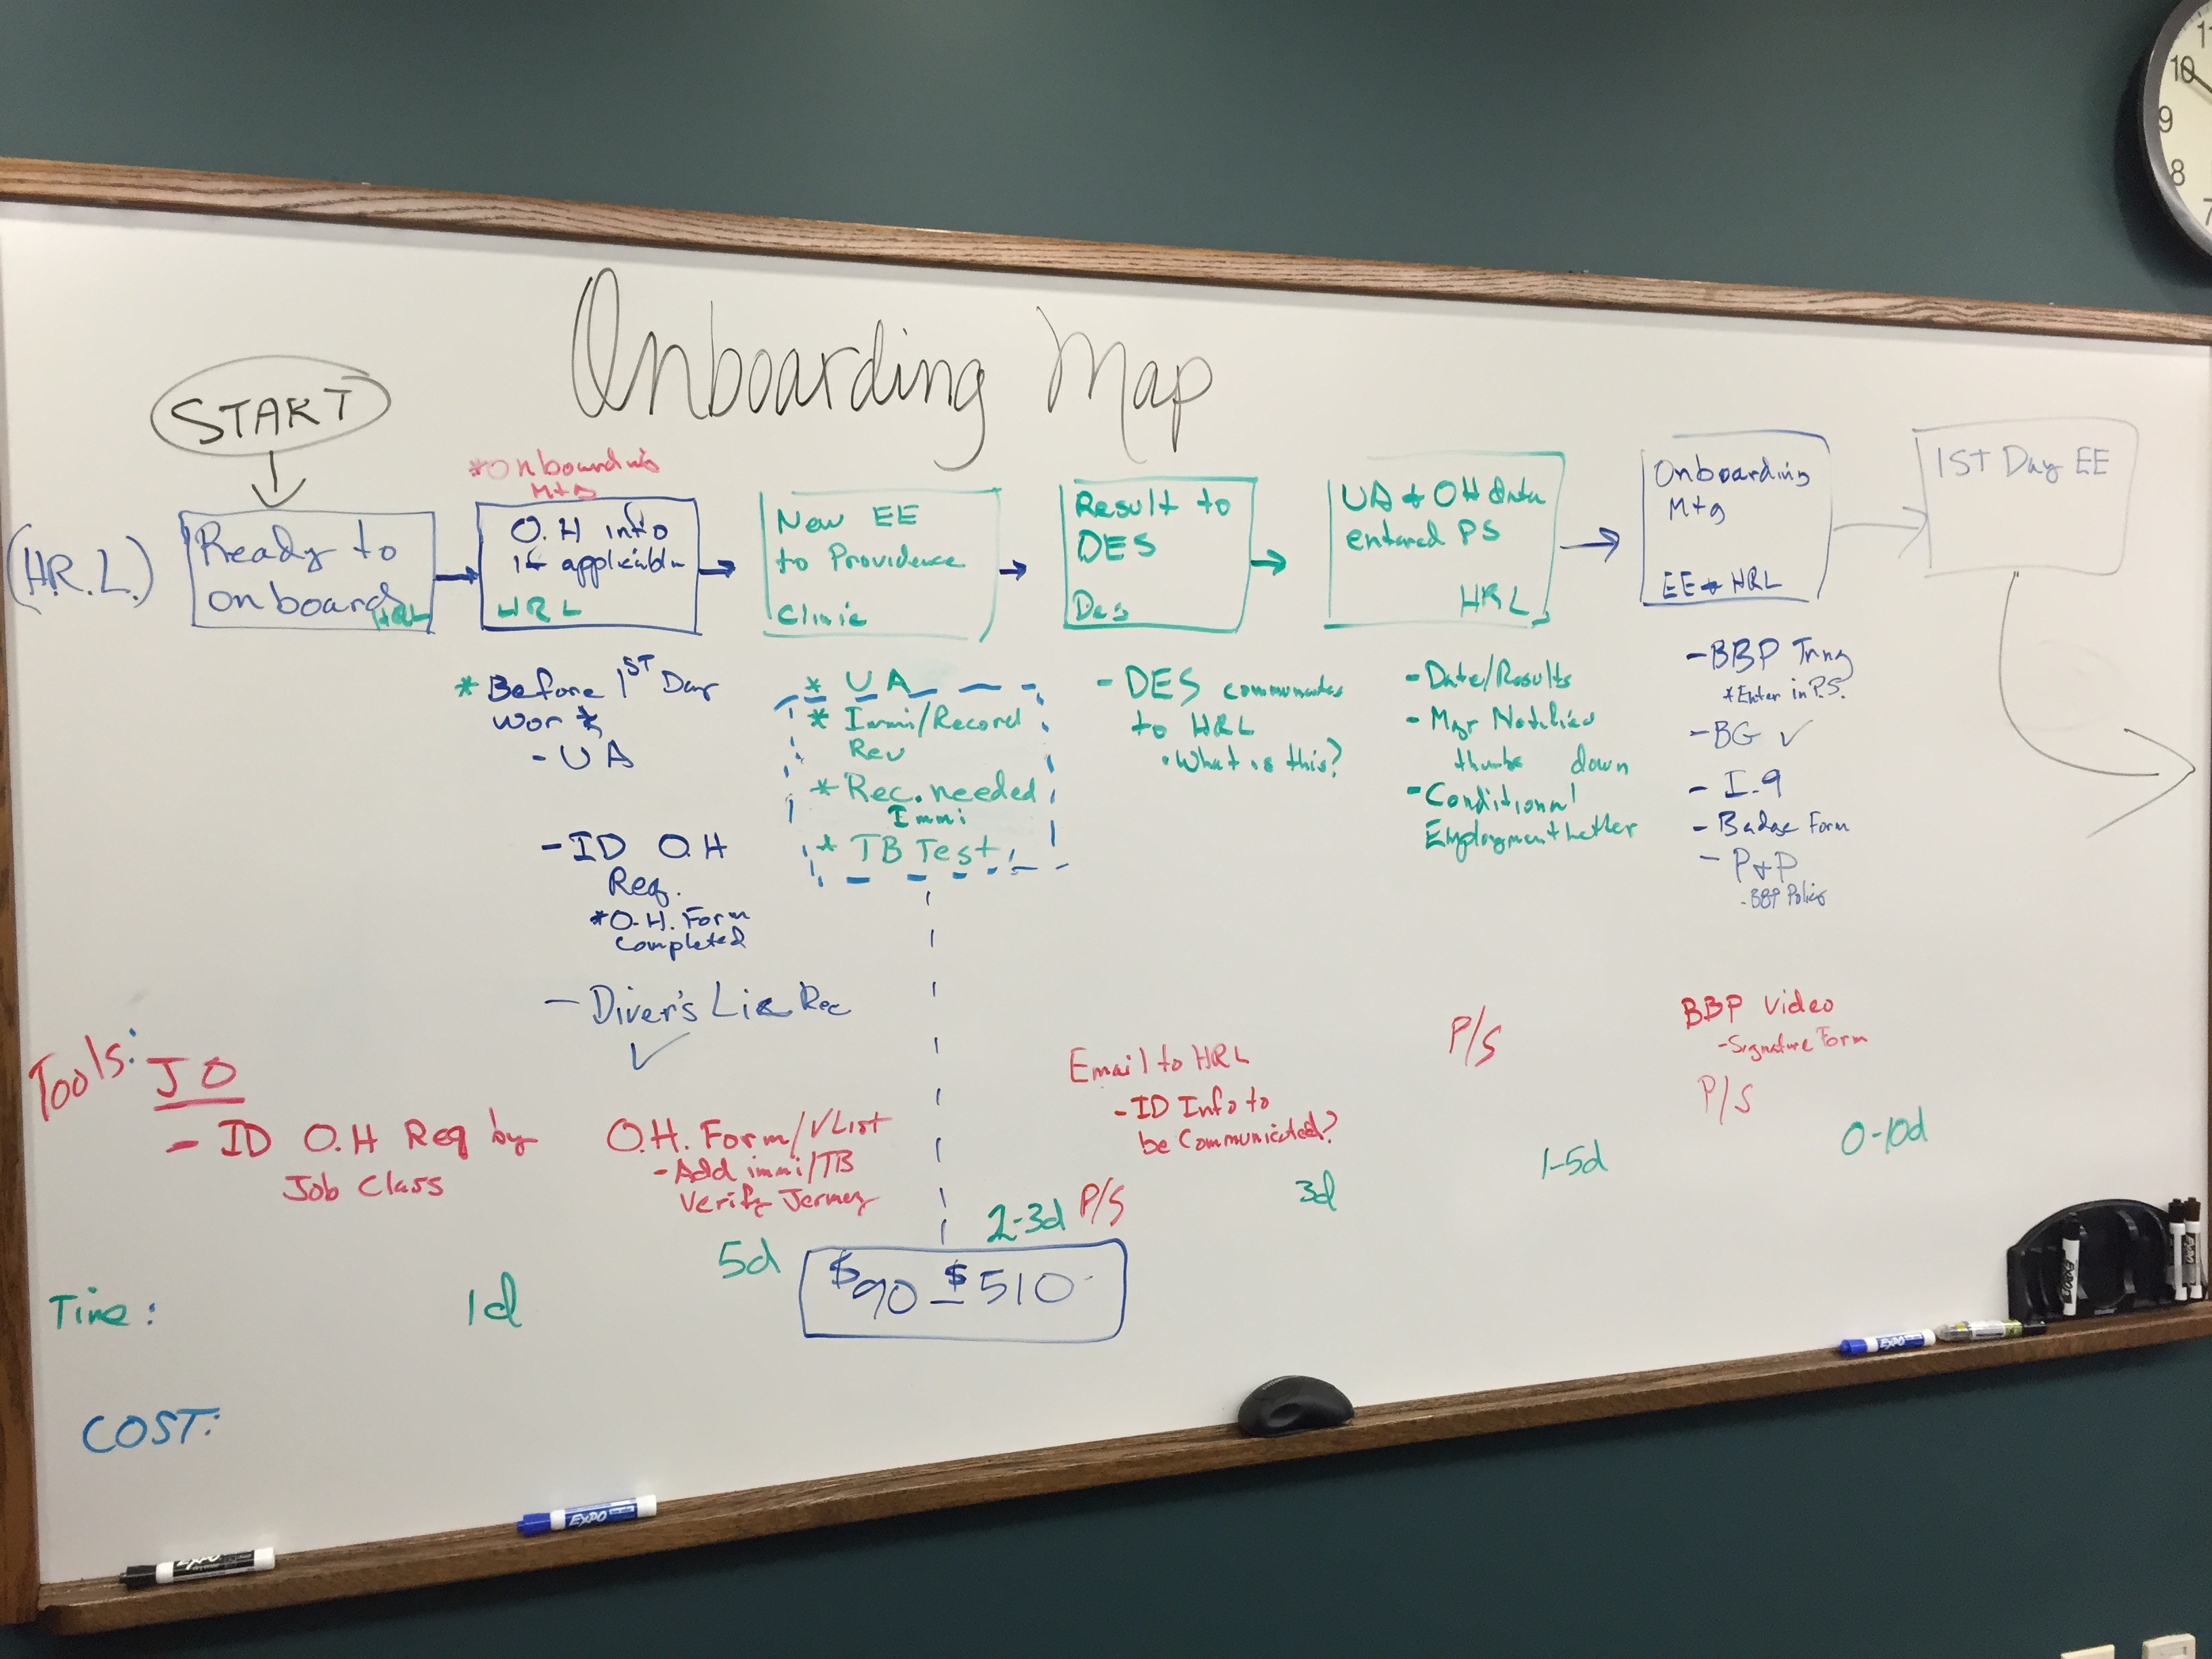 Onboarding Map
START
(H.R.L.)
Ready to
onboard
HRL
*Onboarding
Mtg
O.H info
if applicable
HRL
New EE
to Providence
Clinic
Result to
DES
Des
UA + OH data
entered PS
HRL
Onboarding
Mtg
EE + HRL
1ST Day EE
*Before 1ST Day
work
- UA
- ID O.H
Req.
*O.H. Form
Completed
- Diver's Lic Rec
✓
* UA
* Immi/Record
Rev
* Rec. needed
Immi
* TB Test
- DES communicates
to HRL
• What is this?
- Date/Results
- Mgr Notified
thumbs down
- Conditional
Employment Letter
- BBP Trng
*Enter in P.S.
- BG ✓
- I-9
- Badge Form
- P+P
- BBP Policy
Tools:
JO
- ID O.H Req by
Job Class
O.H. Form/✓List
- Add immi/TB
Verify
P/S
Email to HRL
- ID Info to
be Communicated?
P/S
BBP Video
- Signature Form
P/S
Time:
1d
5d
2-3d
3d
1-5d
0-10d
COST:
$90 - $510
EXPO
EXPO
EXPO
11
10
9
8
7